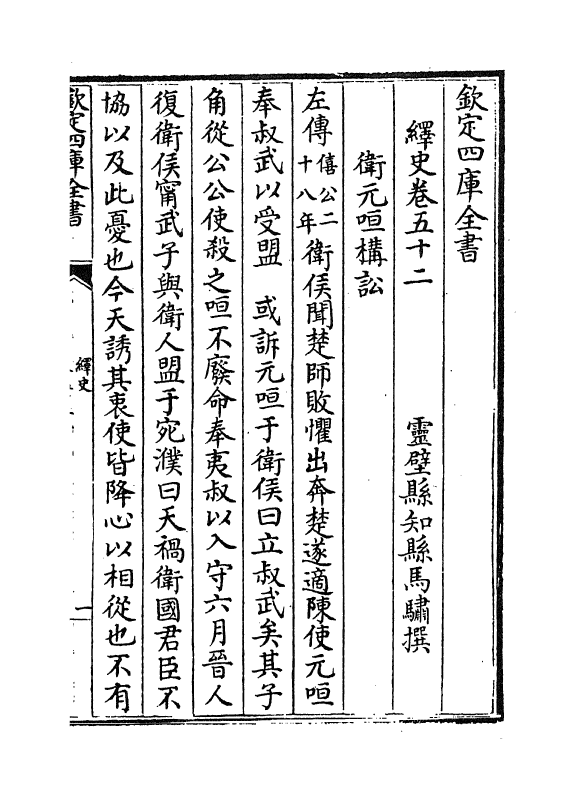 欽定四庫全書
繹史卷五十二
靈壁縣知縣馬驌撰
衛元咺構訟
左傳僖公二十八年衛侯聞楚師敗懼出奔楚遂適陳使元咺
奉叔武以受盟　或訴元咺于衛侯曰立叔武矣其子
角從公公使殺之咺不廢命奉夷叔以入守六月晉人
復衛侯甯武子與衛人盟于宛濮曰天禍衛國君臣不
協以及此憂也今天誘其衷使皆降心以相從也不有
欽定四庫全書
繹史
一